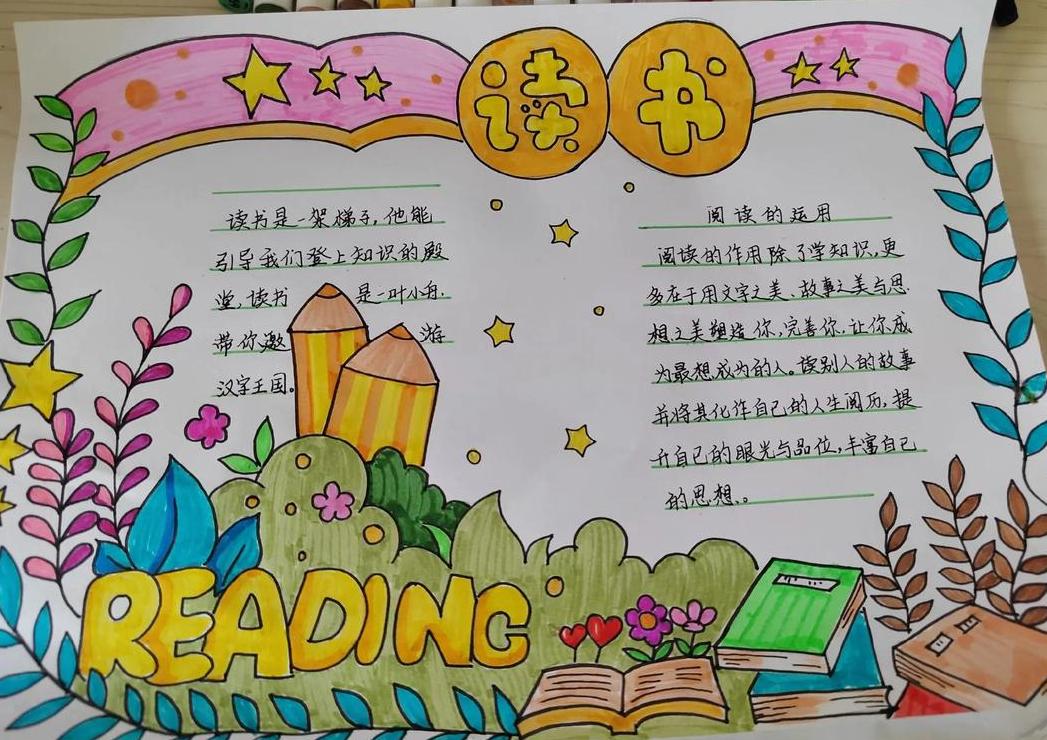 读书
读书是一架梯子,他能
引导我们登上知识的殿
堂,读书 是一叶小舟.
带你遨 游
汉字王国。
阅读的运用
阅读的作用除了学知识,更
多在于用文字之美、故事之美与思
想之美塑造你,完善你,让你成
为最想成为的人。读别人的故事
并将其化作自己的人生阅历,提
升自己的眼光与品位,丰富自己
的思想。
READING